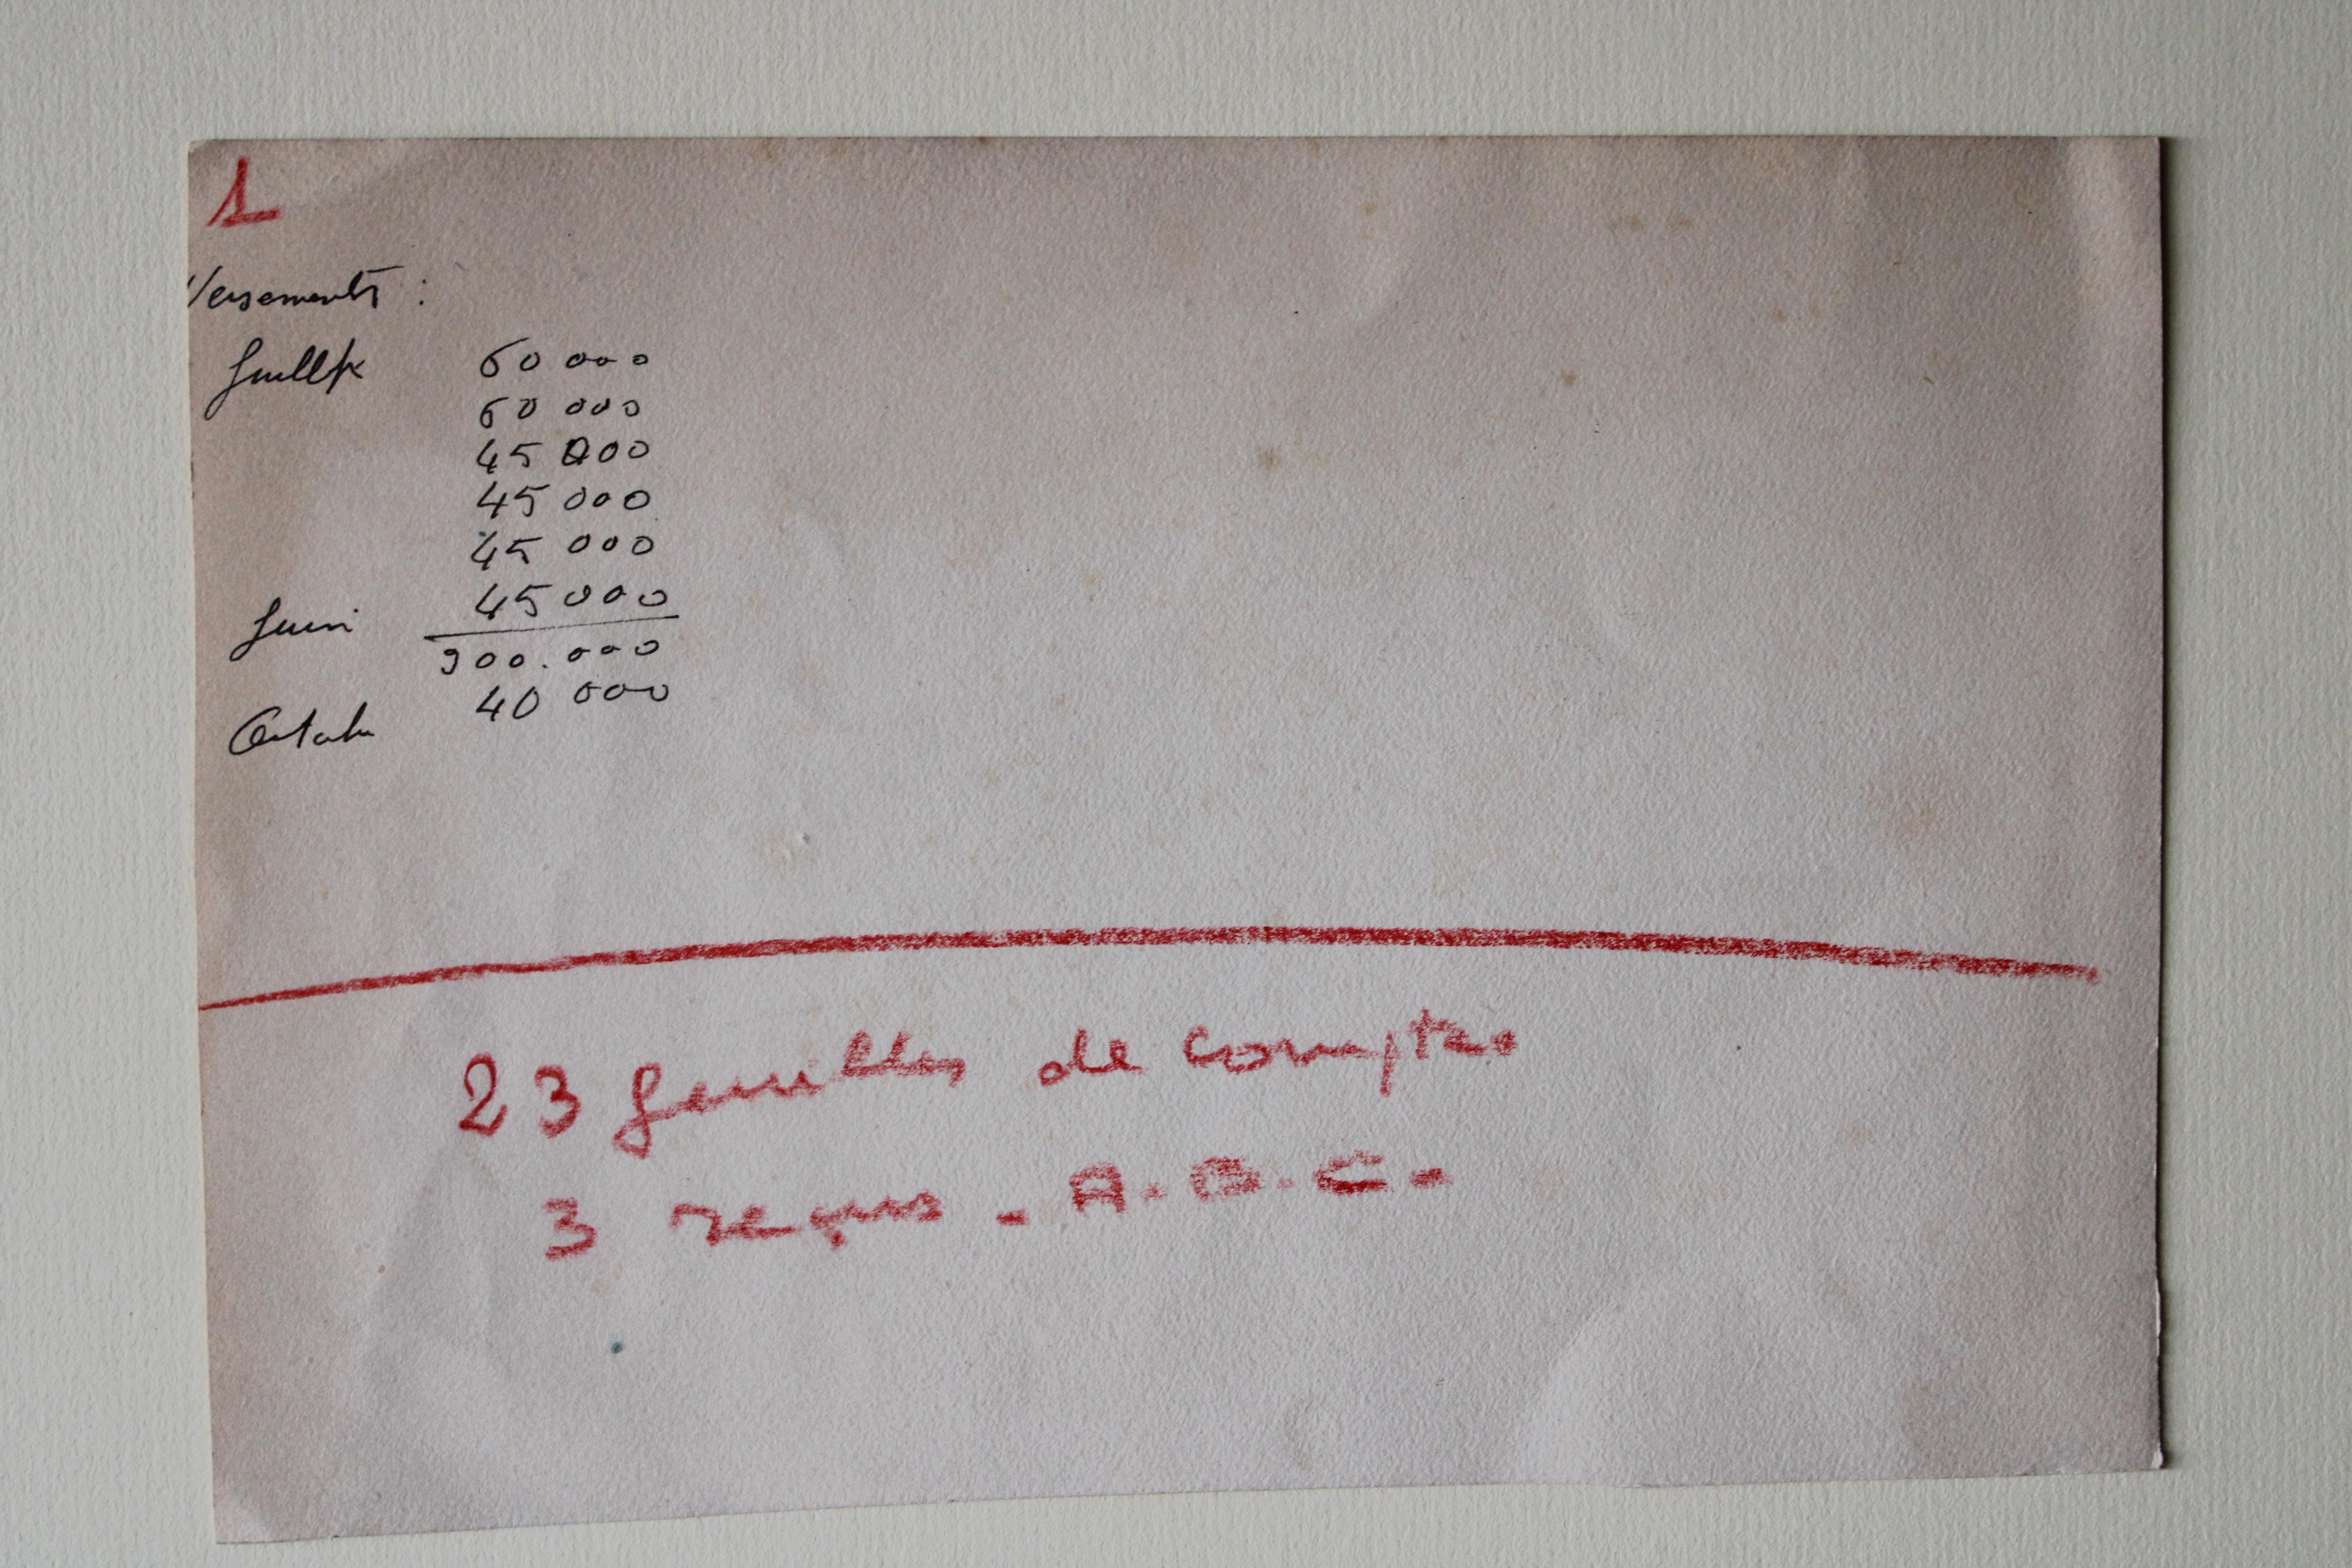 1
Versements :
Juillet 60 000
60 000
45 000
45 000
45 000
Juin 45 000
300.000
Octobre 40 000
23 feuilles de comptes
3 reçus - A. B. C.